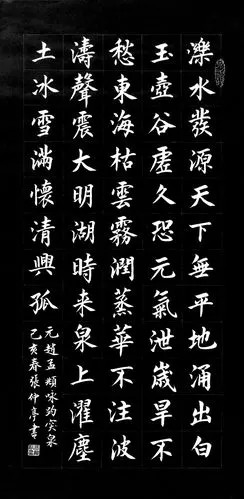 濼水發源天下無平地涌出白
玉壺谷虛久恐元氣泄歲旱不
愁東海枯雲霧潤蒸華不注波
濤聲震大明湖時来泉上濯塵
土冰雪滿懷清興孤
元趙孟頫咏趵突泉
己亥春張仲亭書